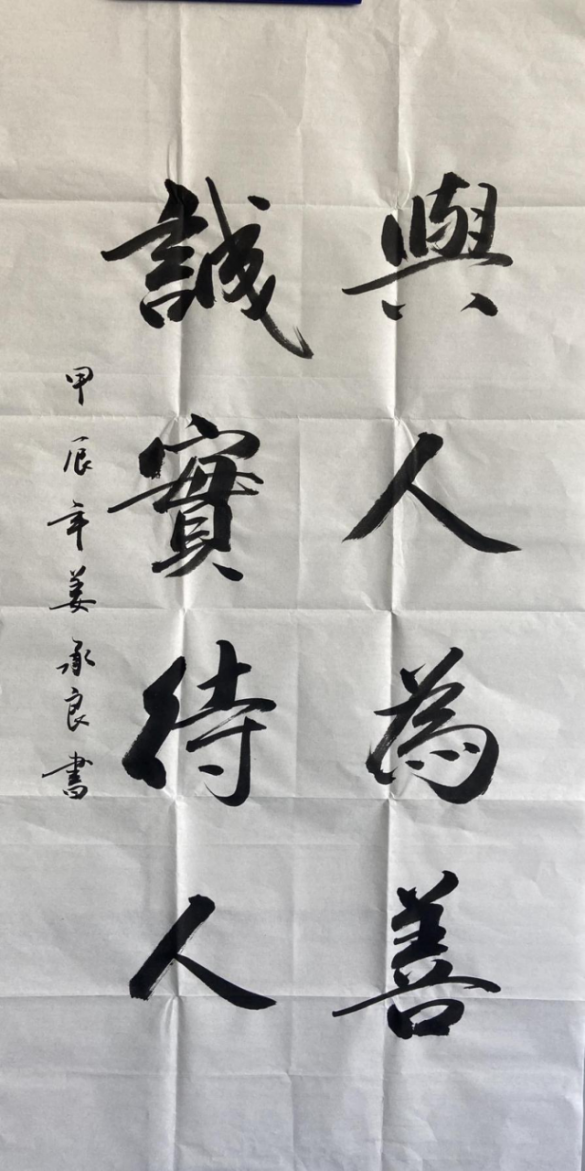 與人為善
誠實待人
甲辰年姜承良書